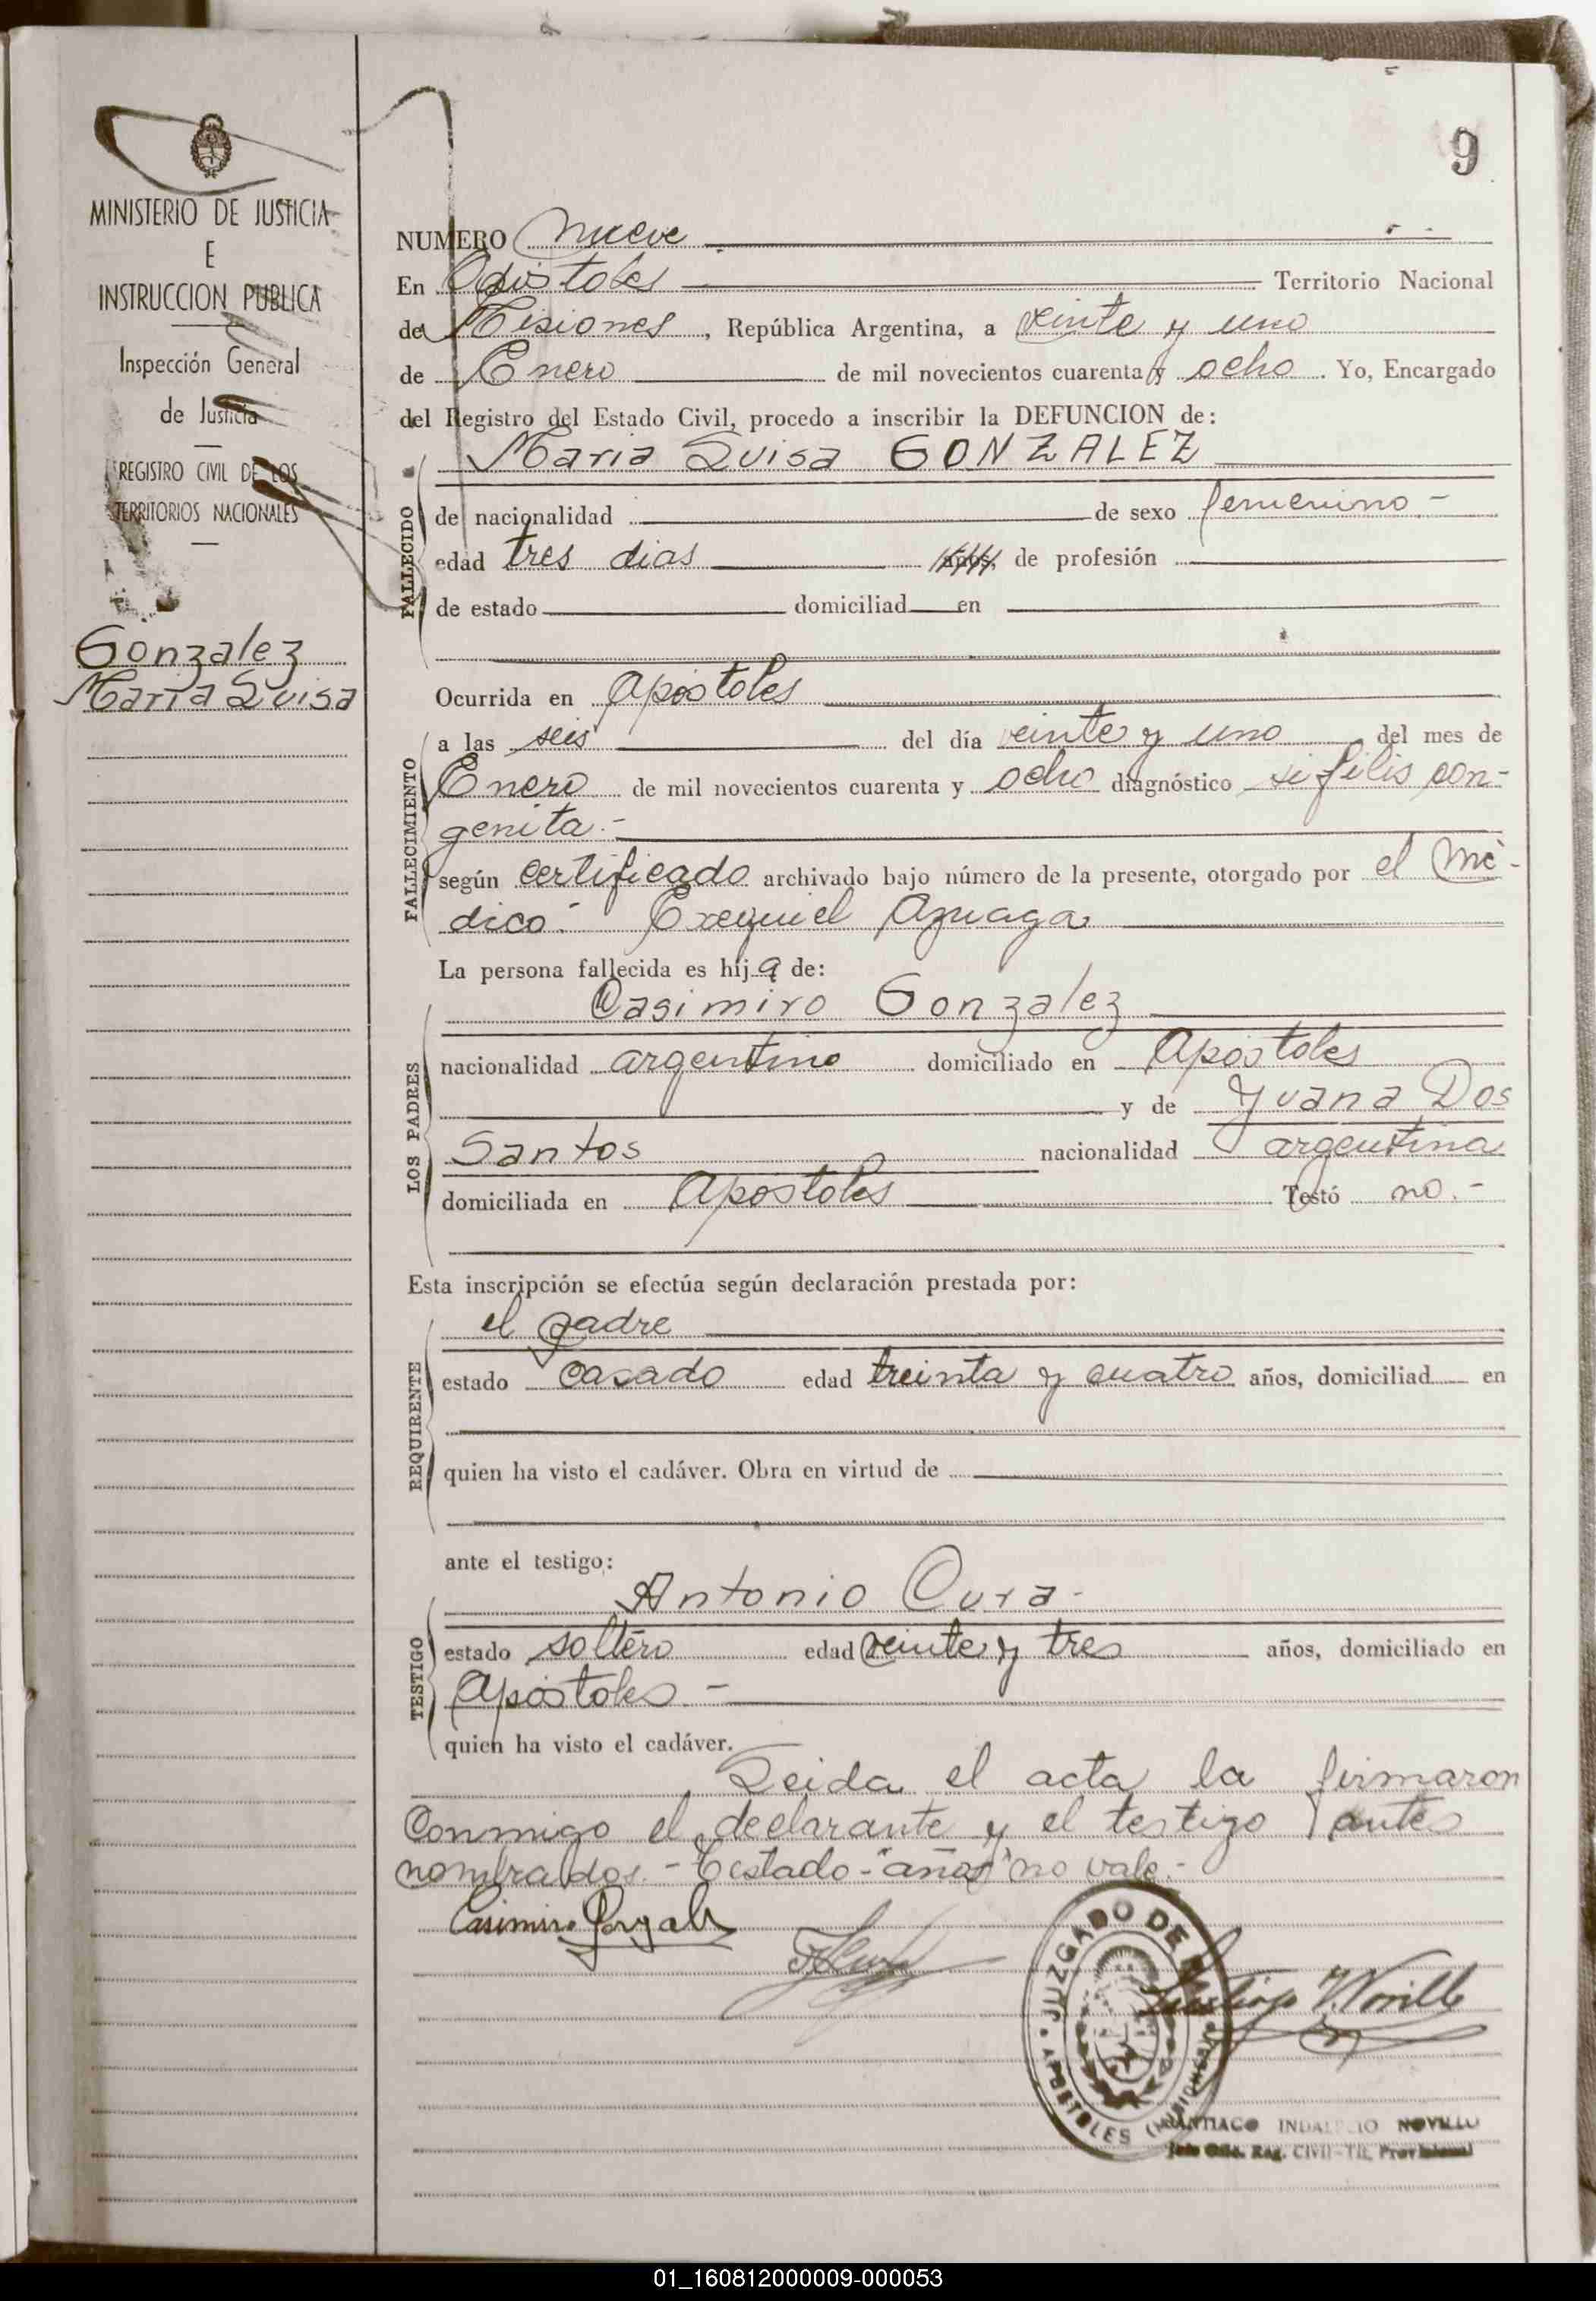 9
MINISTERIO DE JUSTICIA
E
INSTRUCCION PUBLICA
Inspección General
de Justicia
REGISTRO CIVIL DE LOS
TERRITORIOS NACIONALES
Gonzalez
Maria Luisa
NUMERO nueve
En Apóstoles Territorio Nacional
de Misiones, República Argentina, a veinte y uno
de Enero de mil novecientos cuarenta y ocho. Yo, Encargado
del Registro del Estado Civil, procedo a inscribir la DEFUNCION de:
Maria Luisa GONZALEZ
FALLECIDO
de nacionalidad de sexo femenino.-
edad tres dias años, de profesión
de estado domiciliad en
Ocurrida en Apóstoles
FALLECIMIENTO
a las seis del día veinte y uno del mes de
Enero de mil novecientos cuarenta y ocho diagnóstico sifilis con-
genita.-
según certificado archivado bajo número de la presente, otorgado por el mé-
dico: Exequiel Azuaga
La persona fallecida es hija de:
LOS PADRES
Casimiro Gonzalez
nacionalidad argentino domiciliado en Apóstoles
y de Juana Dos
Santos nacionalidad argentina
domiciliada en Apóstoles Testó no.-
Esta inscripción se efectúa según declaración prestada por:
REQUIRENTE
el padre
estado casado edad treinta y cuatro años, domiciliad en
quien ha visto el cadáver. Obra en virtud de
ante el testigo:
TESTIGO
Antonio Cura-
estado soltero edad veinte y tres años, domiciliado en
Apóstoles.-
quien ha visto el cadáver.
Leida el acta la firmaron
conmigo el declarante y el testigo antes
nombrados.- Testado-"años" no vale.-
Casimiro Gonzalez
JUZGADO DE
APOSTOLES (MISIONES)
Santiago I. Novillo
SANTIAGO INDALECIO NOVILLO
Jefe Ofic. Reg. CIVIL-TIT. Provisional
01_160812000009-000053